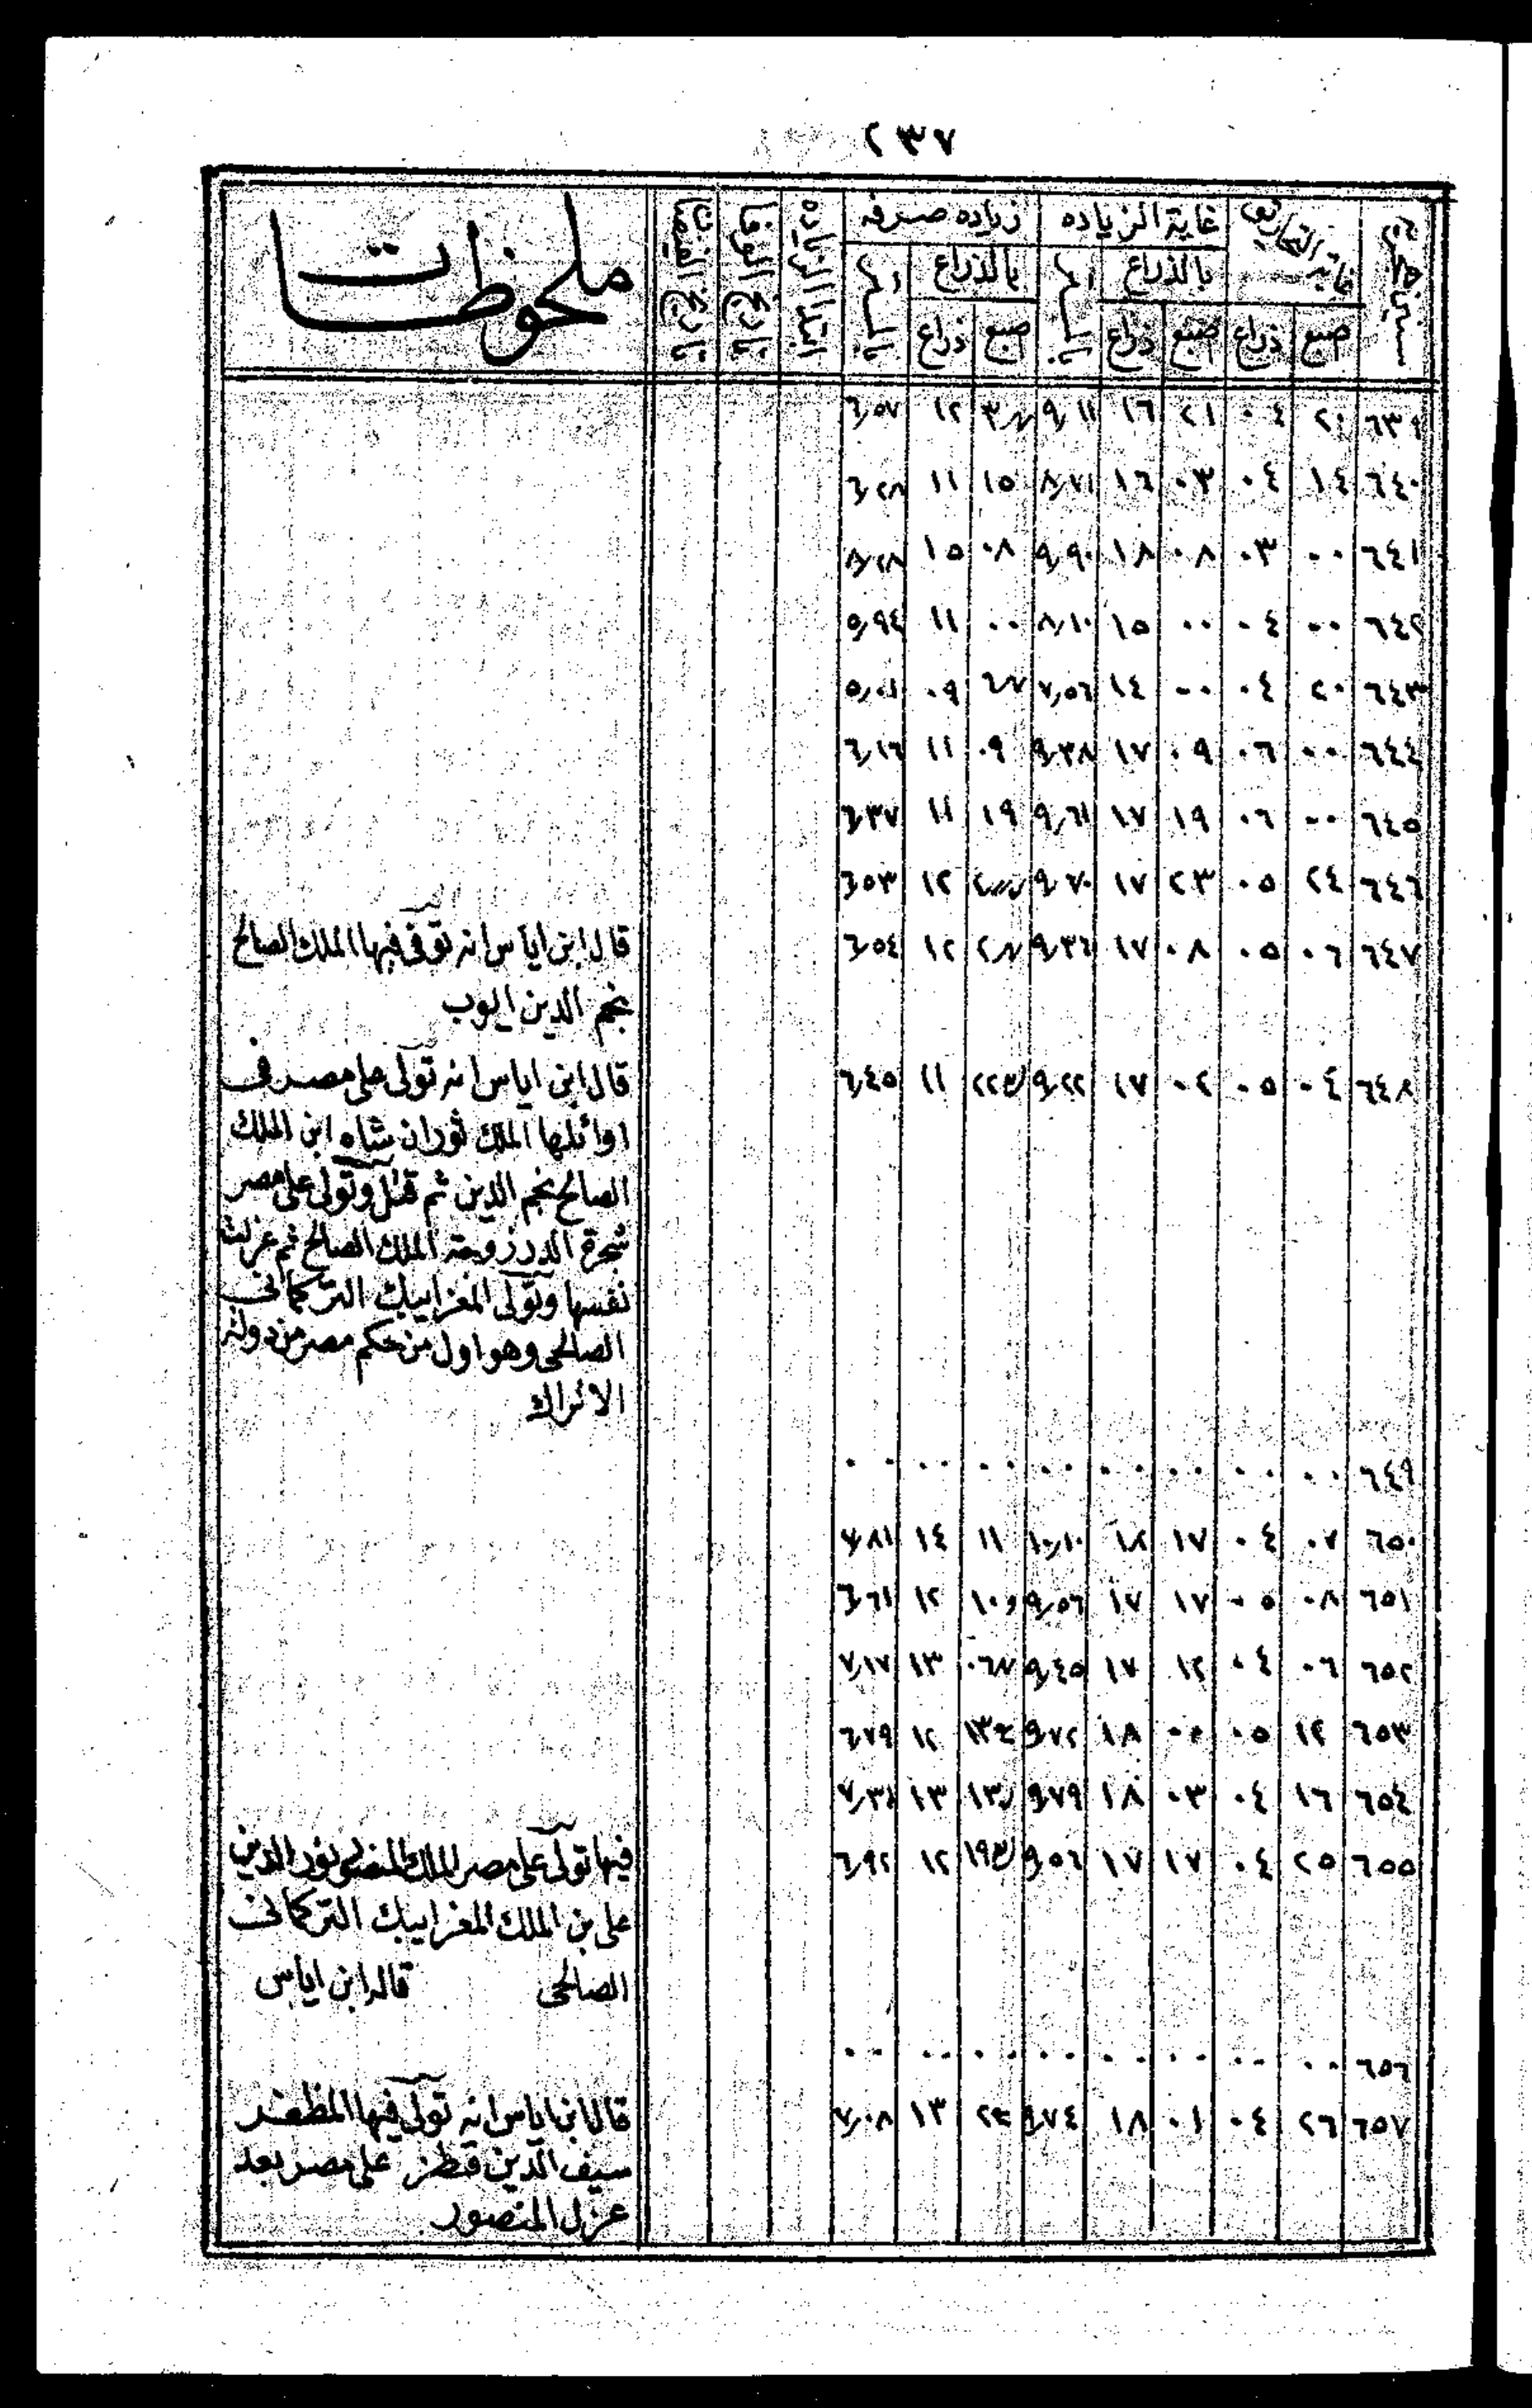 ٢٣٧
سنين هجرية | غاية التحاريق | غاية الزياده | زياده صرفه | ابتدا الزياده | تاريخ الوفا | ملحوظات
بالذراع | بالذراع
صبع | ذراع | صبع | ذراع | صبع | ذراع
٦٣٩ | ٢٠ | ٠٤ | ٢١ | ١٦ | ٩٫١١ | ١٢ | ٦٫٥٧
٦٤٠ | ١٤ | ٠٤ | ٠٣ | ١٦ | ٨٫٧١ | ١٥ | ١١ | ٦٫٢٨
٦٤١ | ٠٠ | ٠٣ | ٠٨ | ١٨ | ٩٫٩٠ | ٠٨ | ١٥ | ٨٫٢٨
٦٤٢ | ٠٠ | ٠٤ | ٠٠ | ١٥ | ٨٫١٠ | ٠٠ | ١١ | ٥٫٩٤
٦٤٣ | ٢٠ | ٠٤ | ٠٠ | ١٤ | ٧٫٥٦ | ٠٩ | ٥٫٠١
٦٤٤ | ٠٠ | ٠٦ | ٠٩ | ١٧ | ٩٫٣٨ | ٠٩ | ١١ | ٦٫١٦
٦٤٥ | ٠٠ | ٠٦ | ١٩ | ١٧ | ٩٫٦١ | ١٩ | ١١ | ٦٫٣٧
٦٤٦ | ٢٤ | ٠٥ | ٢٣ | ١٧ | ٩٫٧٠ | ١٢ | ٦٫٥٣
٦٤٧ | ٠٦ | ٠٥ | ٠٨ | ١٧ | ٩٫٣٦ | ١٢ | ٦٫٥٤
قال ابن اياس انه توفى فيها الملك الصالح
نجم الدين ايوب
٦٤٨ | ٠٤ | ٠٥ | ٠٢ | ١٧ | ٩٫٢٢ | ١١ | ٦٫٤٥
قال ابن اياس انه تولى على مصر فى
اوائلها الملك ثوران شاه ابن الملك
الصالح نجم الدين ثم قتل وتولى على مصر
شجرة الدر زوجة الملك الصالح ثم عزلت
نفسها وتولى المغز ايبك التركمانى
الصالحى وهو اول من حكم مصر من دولة
الاتراك
٦٤٩ | ٠٠ | ٠٠ | ٠٠ | ٠٠ | ٠٠ | ٠٠ | ٠٠ | ٠
٦٥٠ | ٠٧ | ٠٤ | ١٧ | ١٨ | ١٠٫١٠ | ١١ | ١٤ | ٧٫٨١
٦٥١ | ٠٨ | ٠٥ | ١٧ | ١٧ | ٩٫٥٦ | ١٢ | ٦٫٦١
٦٥٢ | ٠٦ | ٠٤ | ١٢ | ١٧ | ٩٫٤٥ | ١٣ | ٧٫١٧
٦٥٣ | ١٢ | ٠٥ | ٠٠ | ١٨ | ٩٫٧٢ | ١٢ | ٦٫٧٩
٦٥٤ | ١٦ | ٠٤ | ٠٣ | ١٨ | ٩٫٧٩ | ١٣
٦٥٥ | ٢٥ | ٠٤ | ١٧ | ١٧ | ٩٫٥٦ | ١٢ | ٦٫٩٢
فيها تولى على مصر الملك المنصور نور الدين
على بن الملك المغز ايبك التركمانى
الصالحى قاله ابن اياس
٦٥٦ | ٠٠ | ٠٠ | ٠٠ | ٠٠ | ٠٠ | ٠٠ | ٠٠ | ٠٠
٦٥٧ | ٢٦ | ٠٤ | ٠١ | ١٨ | ٩٫٧٤ | ١٣ | ٧٫٠٨
قال ابن اياس انه تولى فيها المظفر
سيف الدين قطز على مصر بعد
عزل المنصور